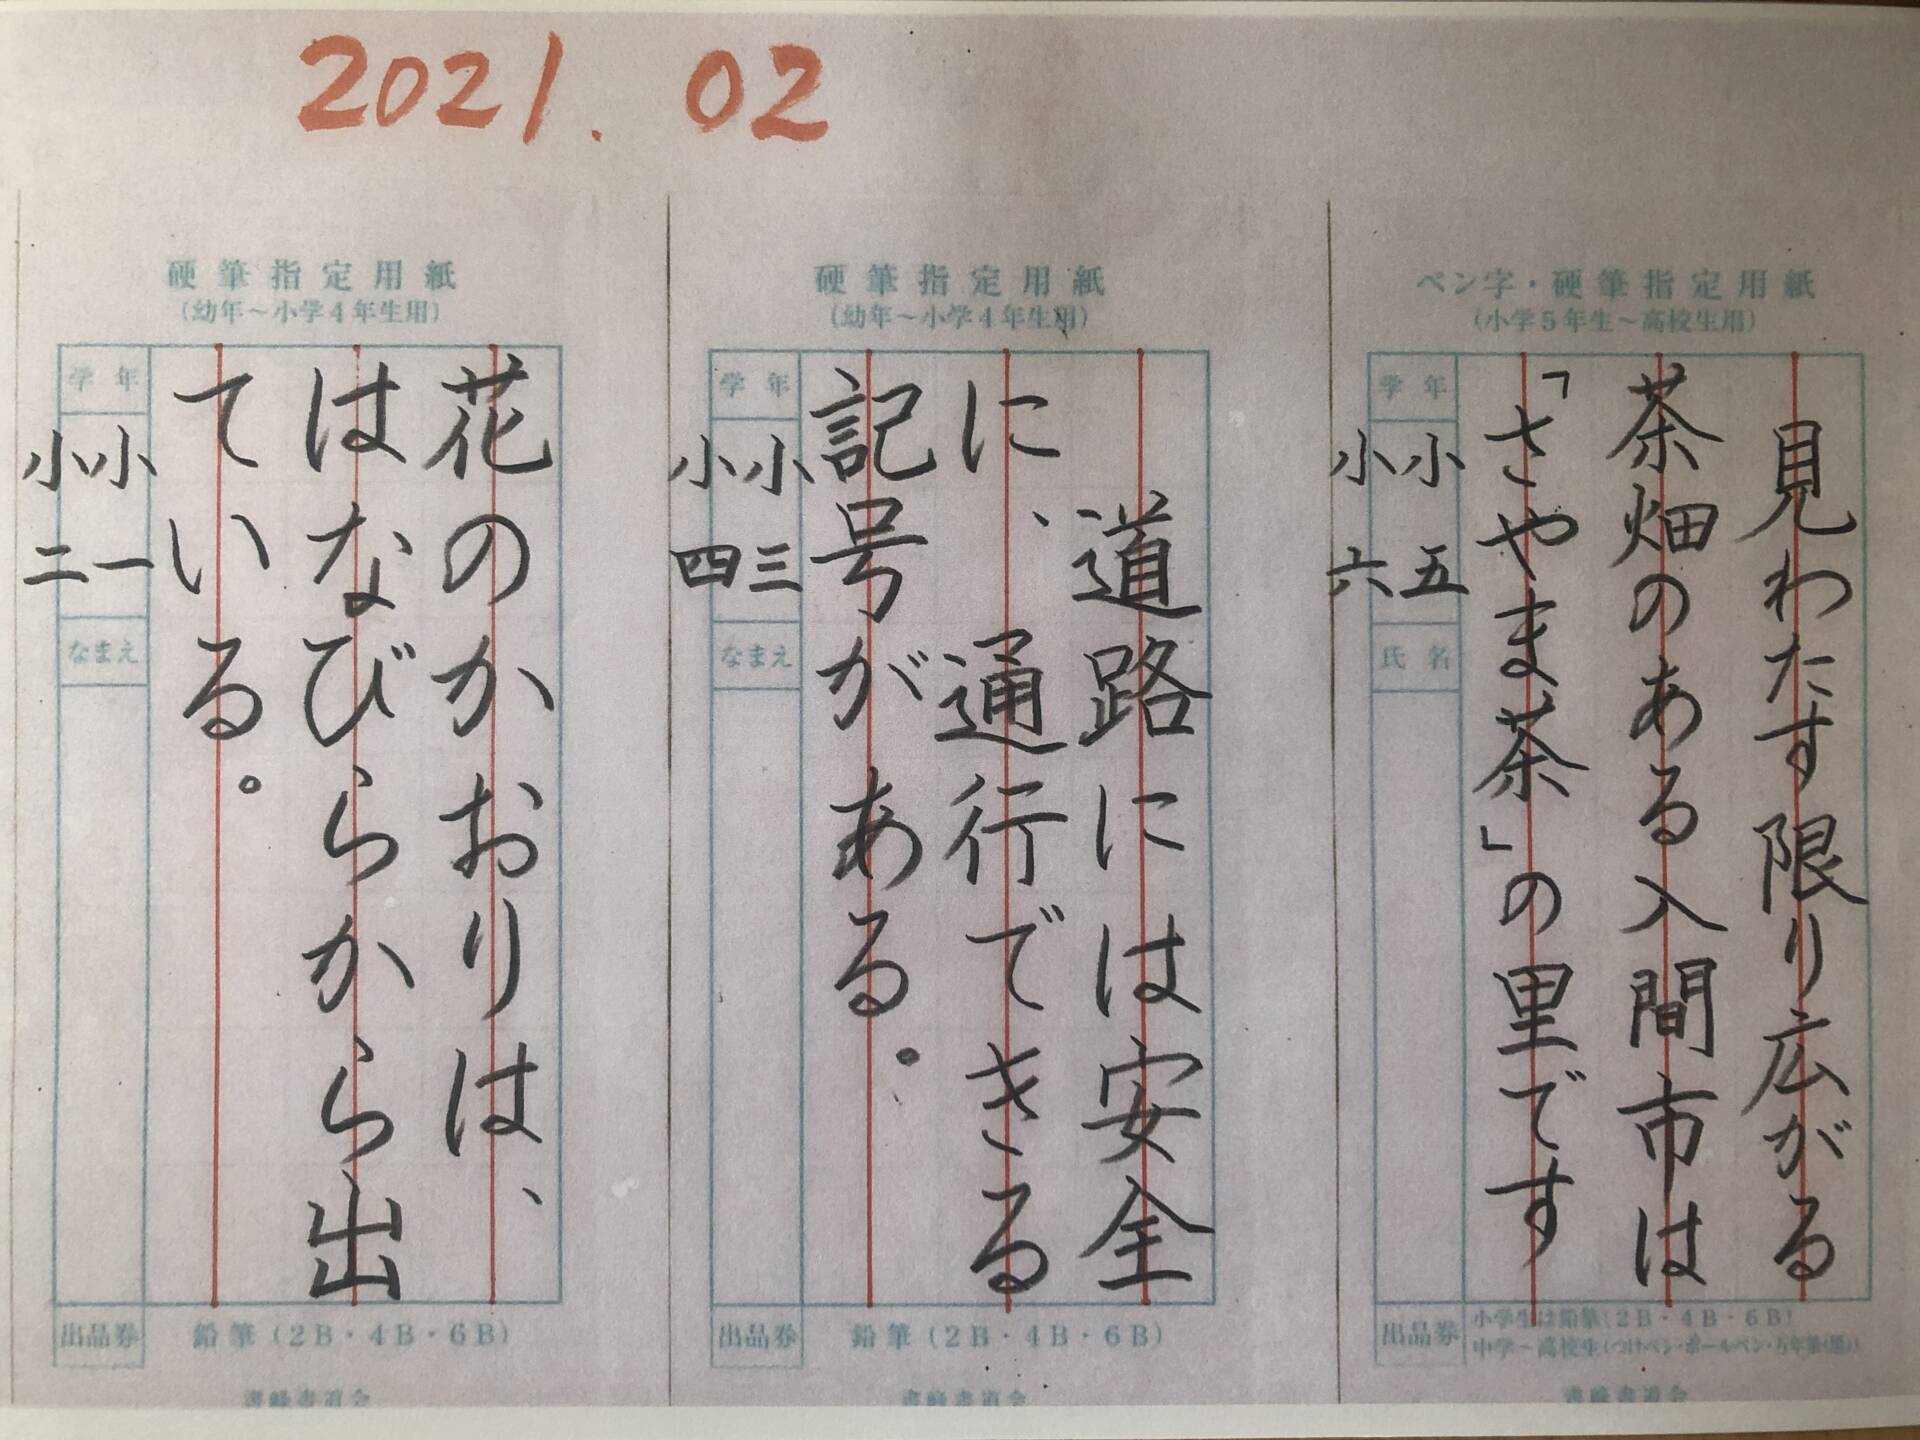 2021.02
ペン字・硬筆指定用紙
(小学5年生～高校生用)
見わたす限り広がる
茶畑のある入間市は
「さやま茶」の里です
学年
小五
小六
氏名
出品券
小学生は鉛筆(2B・4B・6B)
中学～高校生(つけペン・ボールペン・万年筆(黒))
書峰書道会
硬筆指定用紙
(幼年～小学4年生用)
道路には安全
に、通行できる
記号がある。
学年
小三
小四
なまえ
出品券
鉛筆(2B・4B・6B)
書峰書道会
硬筆指定用紙
(幼年～小学4年生用)
花のかおりは、
はなびらから出
ている。
学年
小一
小二
なまえ
出品券
鉛筆(2B・4B・6B)
書峰書道会